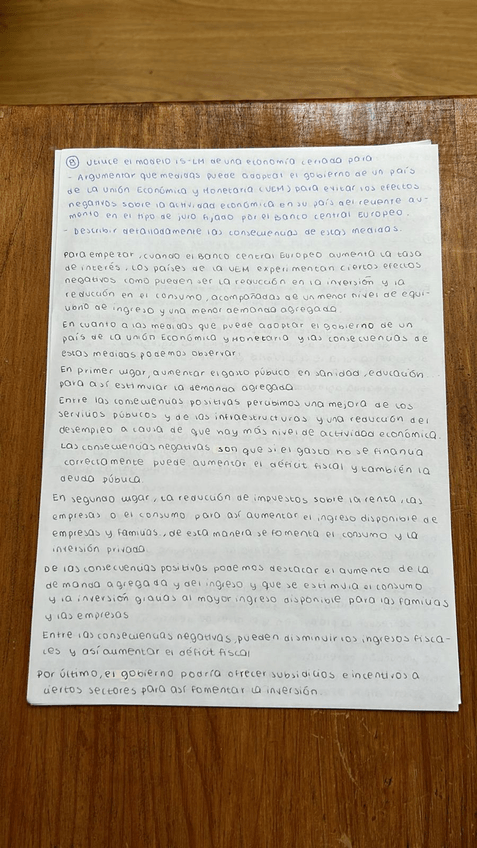 B Utilice el modelo IS-LM de una economía cerrada para
- Argumentar que medidas puede adoptar el gobierno de un país
de la Unión Económica y Monetaria (UEM) para evitar los efectos
negativos sobre la actividad económica en su país del reciente au-
mento en el tipo de fijado por el Banco central Europeo.
- Describir detalladamente las consecuencias de estas medidas.
Para empezar, cuando el Banco central Europeo aumenta la tasa
de interés, los países de la UEM experimentan ciertos efectos
negativos como pueden ser la reducción en la inversión y la
reducción en el consumo, acompañadas de un menor nivel de equi-
librio de ingreso y una menor demanda agregada.
En cuanto a las medidas que puede adoptar el gobierno de un
país de la Unión Económica y Monetaria y las consecuencias de
estas medidas podemos observar:
En primer lugar, aumentar el gasto público en sanidad, educación...
para así estimular la demanda agregada.
Entre las consecuencias positivas percibimos una mejora de los
servicios públicos y de las infraestructuras y una reducción del
desempleo a causa de que hay más nivel de actividad económica.
Las consecuencias negativas son que si el gasto no se financia
correctamente puede aumentar el déficit fiscal y también la
deuda pública.
En segundo lugar, la reducción de impuestos sobre la renta, las
empresas o el consumo para así aumentar el ingreso disponible de
empresas y familias, de esta manera se fomenta el consumo y la
inversión privada.
De las consecuencias positivas podemos destacar el aumento de la
demanda agregada y del ingreso y que se estimula el consumo
y la inversión gracias al mayor ingreso disponible para las familias
y las empresas.
Entre las consecuencias negativas, pueden disminuir los ingresos fisca-
les y así aumentar el déficit fiscal.
Por último, el gobierno podría ofrecer subsidios e incentivos a
ciertos sectores para así fomentar la inversión.